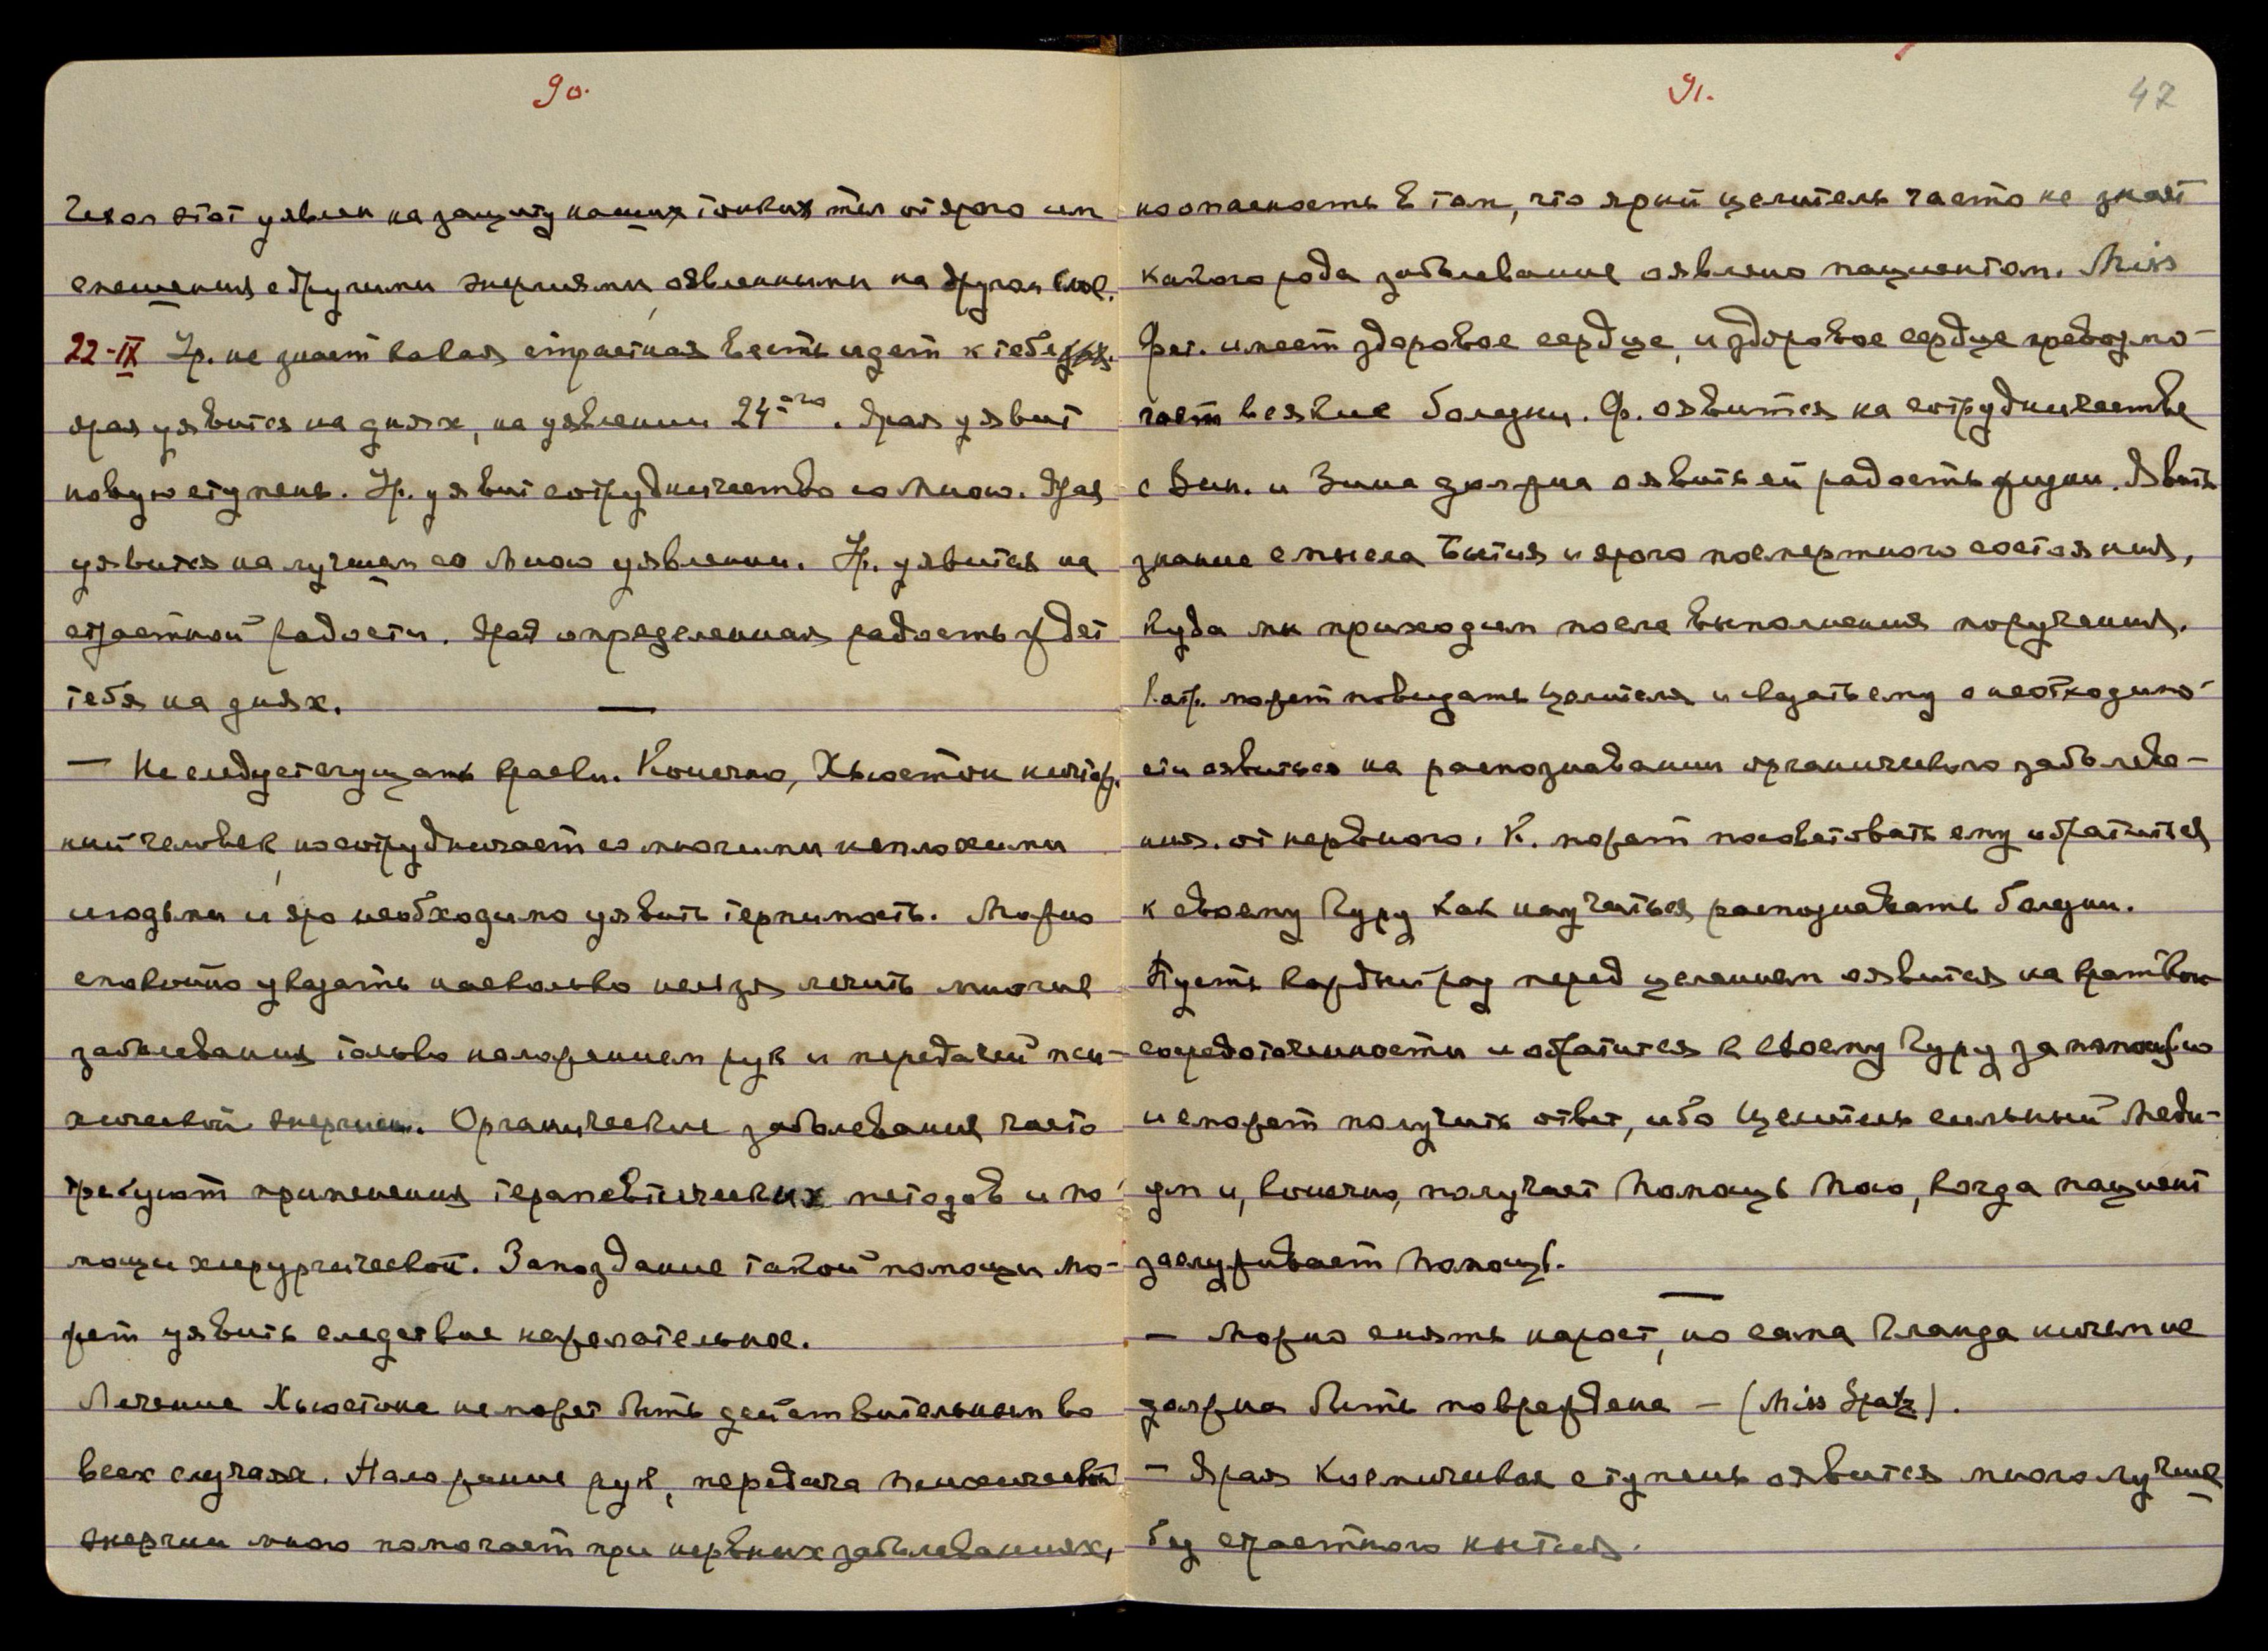 90.
Чехол этот уявлен на защиту наших тонких тел от ярого им
смешения с другими энергиями, оявленными на другом слое.
22-IX Ур. не знает какая страстная весть идет к тебе
ярая уявится на днях, на уявлении 24-ого. Ярая уявит
новую ступень. Ур. уявит сотрудничество со Мною. Ярая
уявится на лучшем со Мною уявлении. Ур. уявится на
страстной радости. Ярая определенная радость ждет
тебя на днях.
— Не следует сгущать краски. Конечно, Хьюстон
ний человек, но сотрудничает со многими неплохими
людьми и яро необходимо уявить терпимость. Можно
спокойно указать насколько нельзя лечить многие
заболевания только наложением рук и передачей пси-
хической энергии. Органические заболевания часто
требуют применения терапевтических методов и по-
мощи хирургической. Запоздание такой помощи мо-
жет уявить следствие нежелательное.
Лечение Хьюстона не может быть действительным во
всех случаях. Наложение рук, передача психической
энергии много помогает при нервных заболеваниях,
91.
47
но опасность в том, что ярый целитель часто не знает
какого рода заболевание оявлено пациентом. Miss
Фог. имеет здоровое сердце, и здоровое сердце превозмо-
гает всякие болезни. Ф. оявится на сотрудничестве
с Зин. и Зина должна оявить ей радость жизни. Явить
знание смысла Бытия и ярого посмертного состояния,
куда мы приходим после выполнения поручения.
Кэтр. может повидать целителя и сказать ему о необходимо-
сти оявиться на распознавании органического заболева-
ния. от нервного. К. может посоветовать ему обратиться
к своему Гуру как научиться распознавать болезни.
Пусть каждый раз перед целением оявится на кратком
сосредоточенности и обратится к своему Гуру за помощью
и сможет получить ответ, ибо Целитель сильный Меди-
ум и, конечно, получает Помощь Мою, когда пациент
заслуживает Помощь.
— Можно снять нарост, но сама Гланда ничем не
должна быть повреждена — (Miss
— Ярая Космическая ступень оявится много лучше
без страстного нытия.